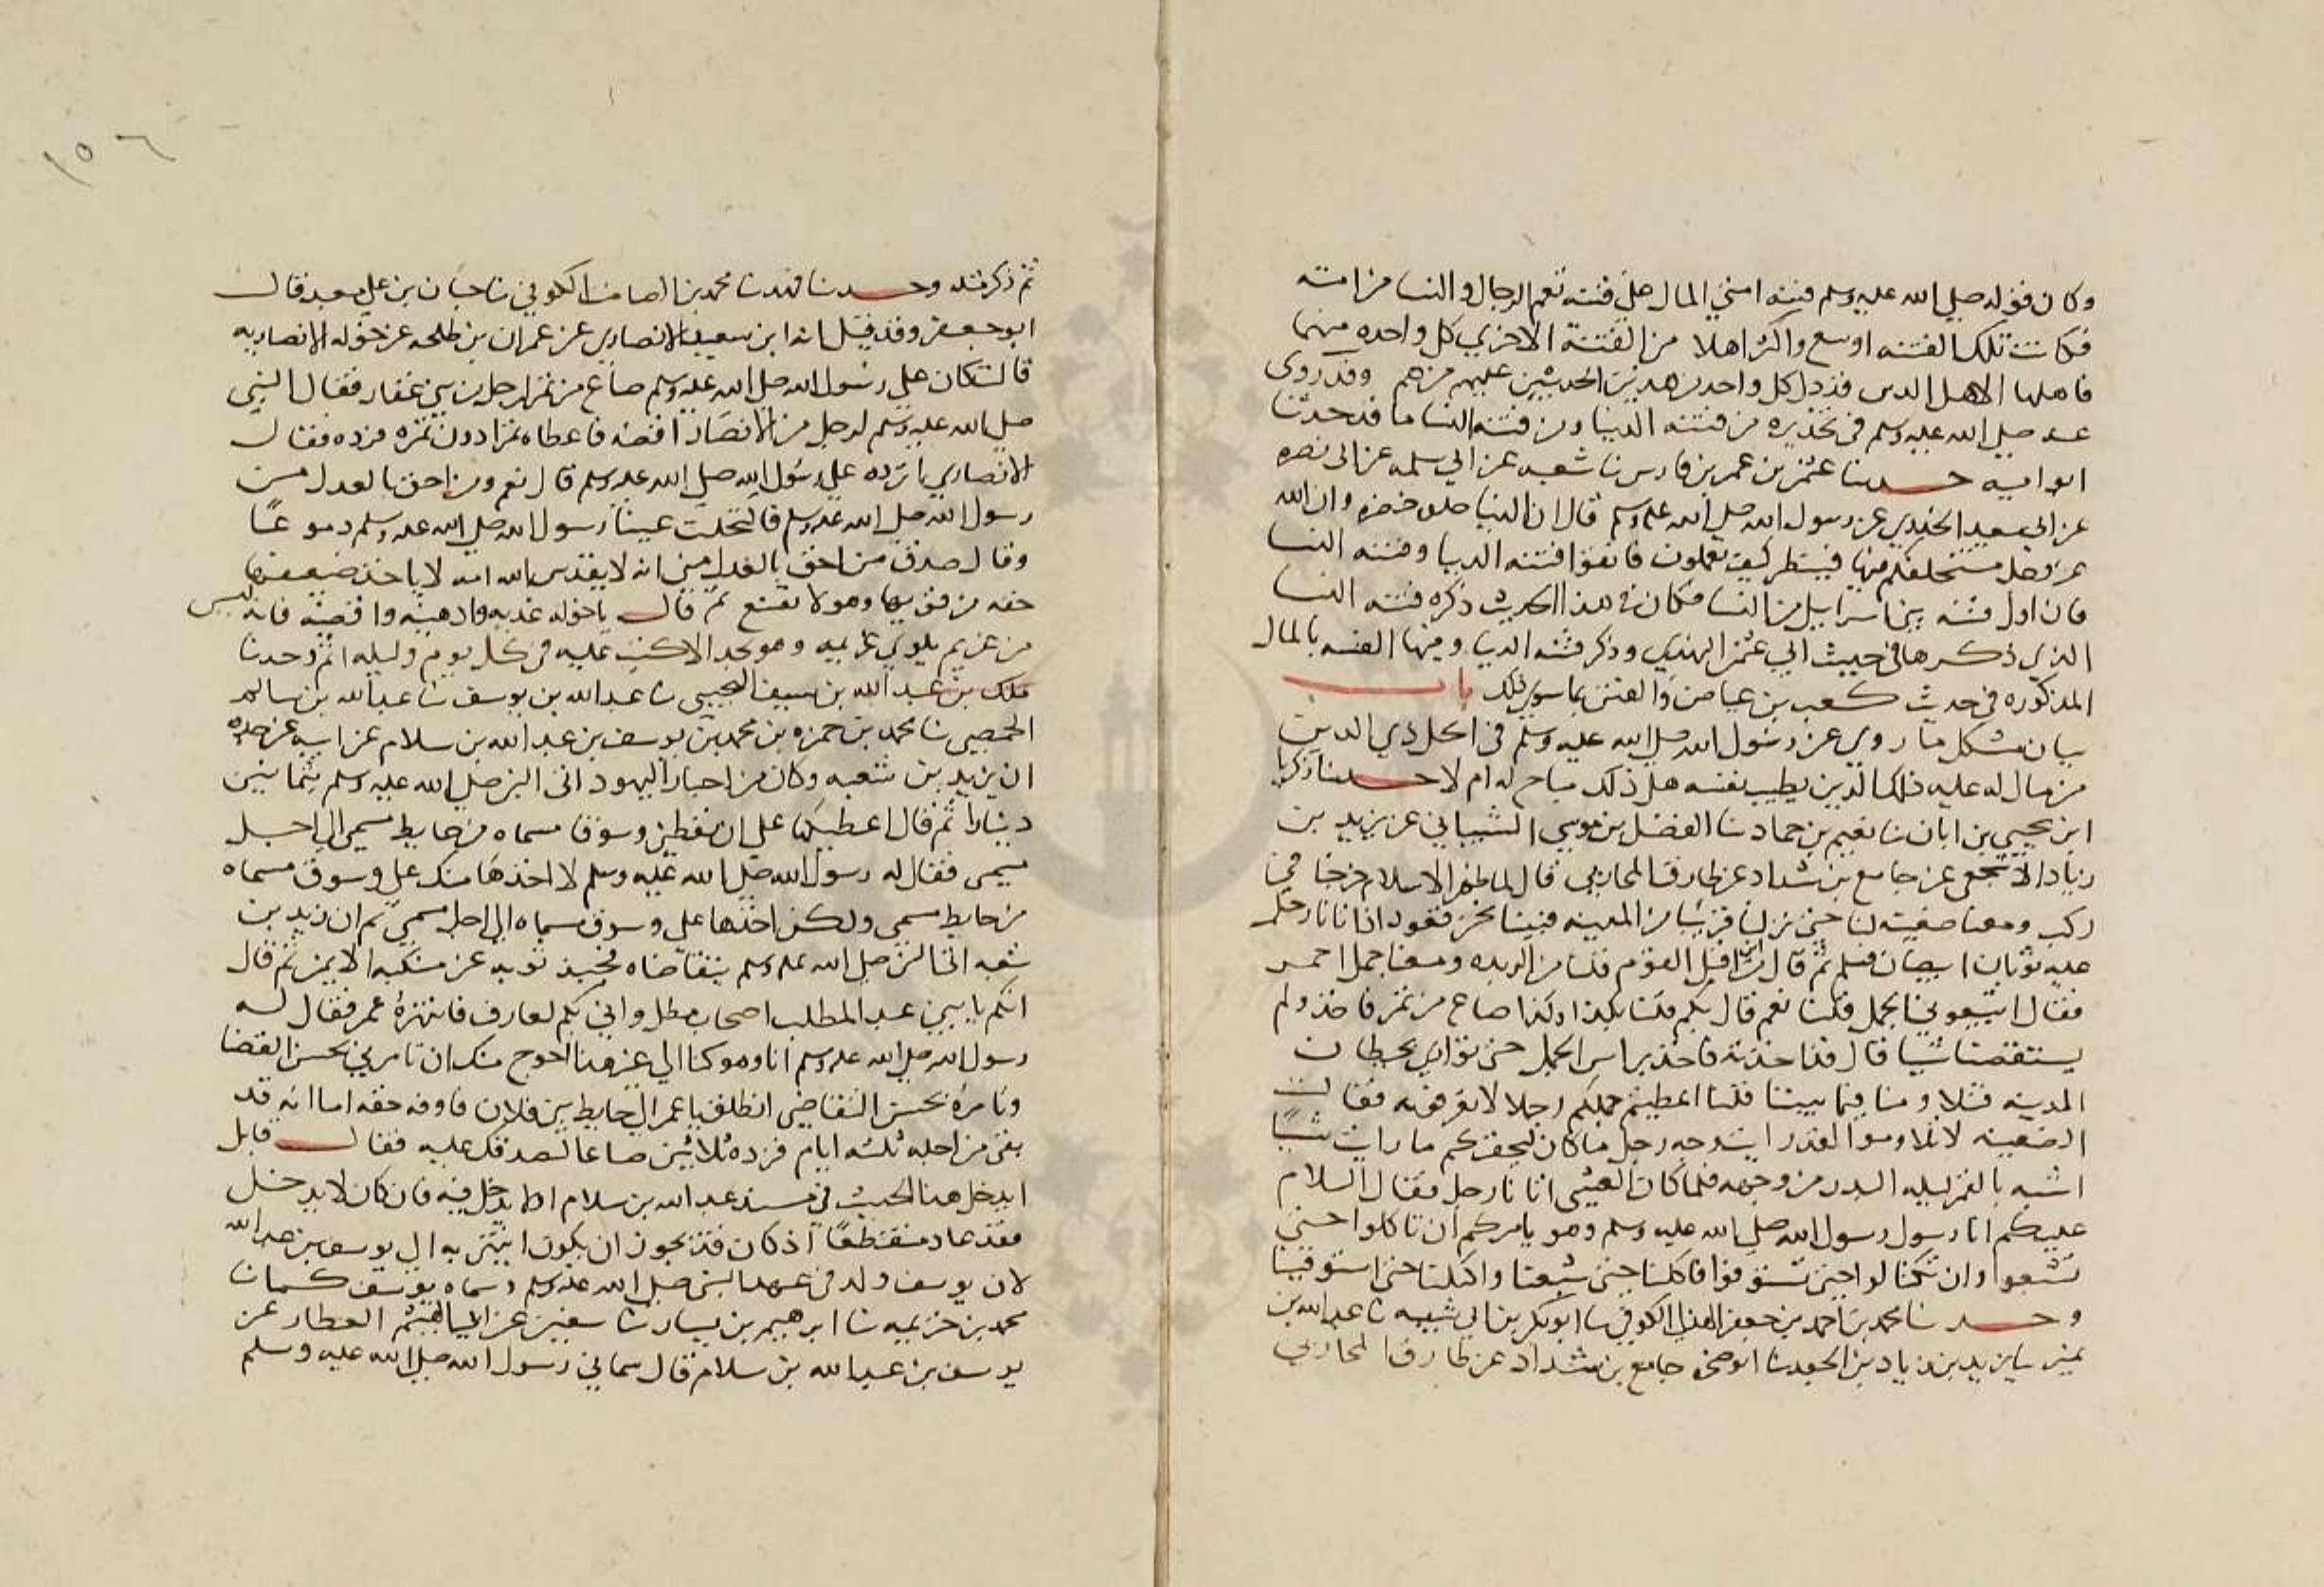 وكان قوله صلى الله عليه وسلم فتنة امتي المال على فتنه تعم الرجال والنسا من امته
فكانت تلك الفتنه اوسع واكثر اهلا من الفتنة الاخري كل واحده منهما
فاهلها الاهل الدين قد دل كل واحد من هذين الحديثين عليهم من هم وقد روى
عنه صلى الله عليه وسلم في تحذيره من فتنته الدنيا ومن فتنه النسا ما قد حدثنا
ابو اميه حـــدثنا عثمن بن عمر بن فارس نا شعبه عن ابي سلمه عن ابي نضره
عن ابي سعيد الخدري عن رسول الله صلى الله عليه وسلم قال ان الدنيا حلوه خضره وان الله
عز وجل مستخلفكم فيها فينظر كيف تعملون فاتقوا فتنه الدنيا وفتنه النسا
فان اول فتنه بني اسراييل من النسا فكان في هذا الحديث ذكره فتنه النسا
الذي ذكرها في حديث ابي عثمن النهدي وذكر فتنه الدنيا ومنها الفتنه بالمال
المذكوره في حديث كعب بن عياض والفتن بما سوي ذلك باب
بيان مشكل ما روي عن رسول الله صلى الله عليه وسلم في اكل ذي الدين
من مال له عليه ذلك الدين بطيب نفسه هل ذلك مباح له ام لا حـــدثنا زكريا
ابن يحيي بن ابان نا نعيم بن حماد نا الفضل بن موسي الشيباني عن يزيد بن
زياد الاشجعي عن جامع بن شداد عن طارق المحاربي قال لما ظهر الاسلام خرجنا في
ركب ومعنا ضعينه لنا حتى نزلنا قريبا من المدينه فبينا نحن قعود اذ اتانا رجل
عليه ثوبان ابيضان فسلم ثم قال من اين اقبل القوم قلنا من الربده ومعنا جمل احمر
فقال اتبيعوني الجمل قلنا نعم قال بكم قلنا بكذا وكذا صاع من تمر فاخذه ولم
يستنقصنا شيا قال قد اخذته فاخذ براس الجمل حتى توارى بحيطان
المدينه فتلاومنا فيما بيننا قلنا اعطيتم جملكم رجلا لا تعرفونه فقالت
الضعينه لا تلاوموا لقد رايت وجه رجل ما كان ليحقركم ما رايت شيًا
اشبه بالقمر ليله البدر من وجهه فلما كان العشي اتانا رجل فقال السلام
عليكم انا رسول رسول الله صلى الله عليه وسلم وهو يامركم ان تاكلوا حتى
تشبعوا وان تكتالوا حتى تستوفوا فاكلنا حتى شبعنا واكتلنا حتى استوفينا
وحـــدثنا محمد بن احمد بن جعفر الذهلي الكوفي نا ابو بكر بن ابي شيبه نا عبد الله بن
نمير نا يزيد بن زياد بن ابي الجعد نا ابو صخره جامع بن شداد عن طارق المحاربي
١٥٦
ثم ذكر مثله وحـــدثنا فهد نا محمد بن الصامت الكوفي نا حبان بن علي سعد قال
ابو جعفر وقد قيل انه ابن سعيد الانصاري عن عمران بن طلحه عن خوله الانصاريه
قالت كان على رسول الله صلى الله عليه وسلم صاع من تمر لرجل من بني غفار فقال النبي
صلى الله عليه وسلم لرجل من الانصار اقضه فاعطاه تمرا دون تمره فرده فقال
الانصاري اترده على رسول الله صلى الله عليه وسلم قال نعم ومن احق بالعدل من
رسول الله صلى الله عليه وسلم قالت فاكتحلت عينا رسول الله صلى الله عليه وسلم دموعًا
وقال صدق من احق بالعدل مني انه لا يقدس الله امه لا ياخذ ضعيفها
حقه من قويها وهو لا يتعتع ثم قال يا خوله عديه وادهنيه واقضيه فانه ليس
من غريم يلوي غريمه وهو يجد الا كتب عليه في كل يوم وليله اثم وحدثنا
ملك بن عبد الله بن سيف التجيبي نا عبد الله بن يوسف نا عبد الله بن سالم
الحمصي نا محمد بن حمزه بن محمد بن يوسف بن عبد الله بن سلام عن ابيه عن جده
ان زيد بن شعبه وكان من احبار اليهود اتى النبي صلى الله عليه وسلم بثمانين
دينارا ثم قال اعطيكها على ان تعطين وسوقا مسماه من حايط مسمى الى اجل
مسمى فقال له رسول الله صلى الله عليه وسلم لا اخذها منك على وسوق مسماه
من حايط مسمى ولكن اخذها على وسوق مسماه الى اجل مسمى ثم ان زيد بن
شعبه اتى النبي صلى الله عليه وسلم يتقاضاه فجبذ ثوبه عن منكبه الايمن ثم قال
انكم يا بني عبد المطلب اصحاب مطل واني بكم لعارف فانتهره عمر فقال له
رسول الله صلى الله عليه وسلم انا وهو كنا الى غير هذا احوج منك ان تامرني بحسن القضا
وتامره بحسن التقاضي انطلق يا عمر الى حايط بني فلان فاوفه حقه اما انه قد
بقى من اجله ثلثه ايام فزده ثلاثين صاعا لصدقك عليه فقال قايل
ايدخل هذا الحديث في مسند عبد الله بن سلام او لا يدخل فيه فان كان لا يدخل
فقد عاد منقطعًا اذ كان قد يجوز ان يكون انتهى به الى يوسف بن عبد الله
لان يوسف ولد في عهد النبي صلى الله عليه وسلم وسماه يوسف كما نا
محمد بن خزيمه نا ابرهيم بن بشار نا سفين عن ابي الهيثم العطار عن
يوسف بن عبد الله بن سلام قال سماني رسول الله صلى الله عليه وسلم